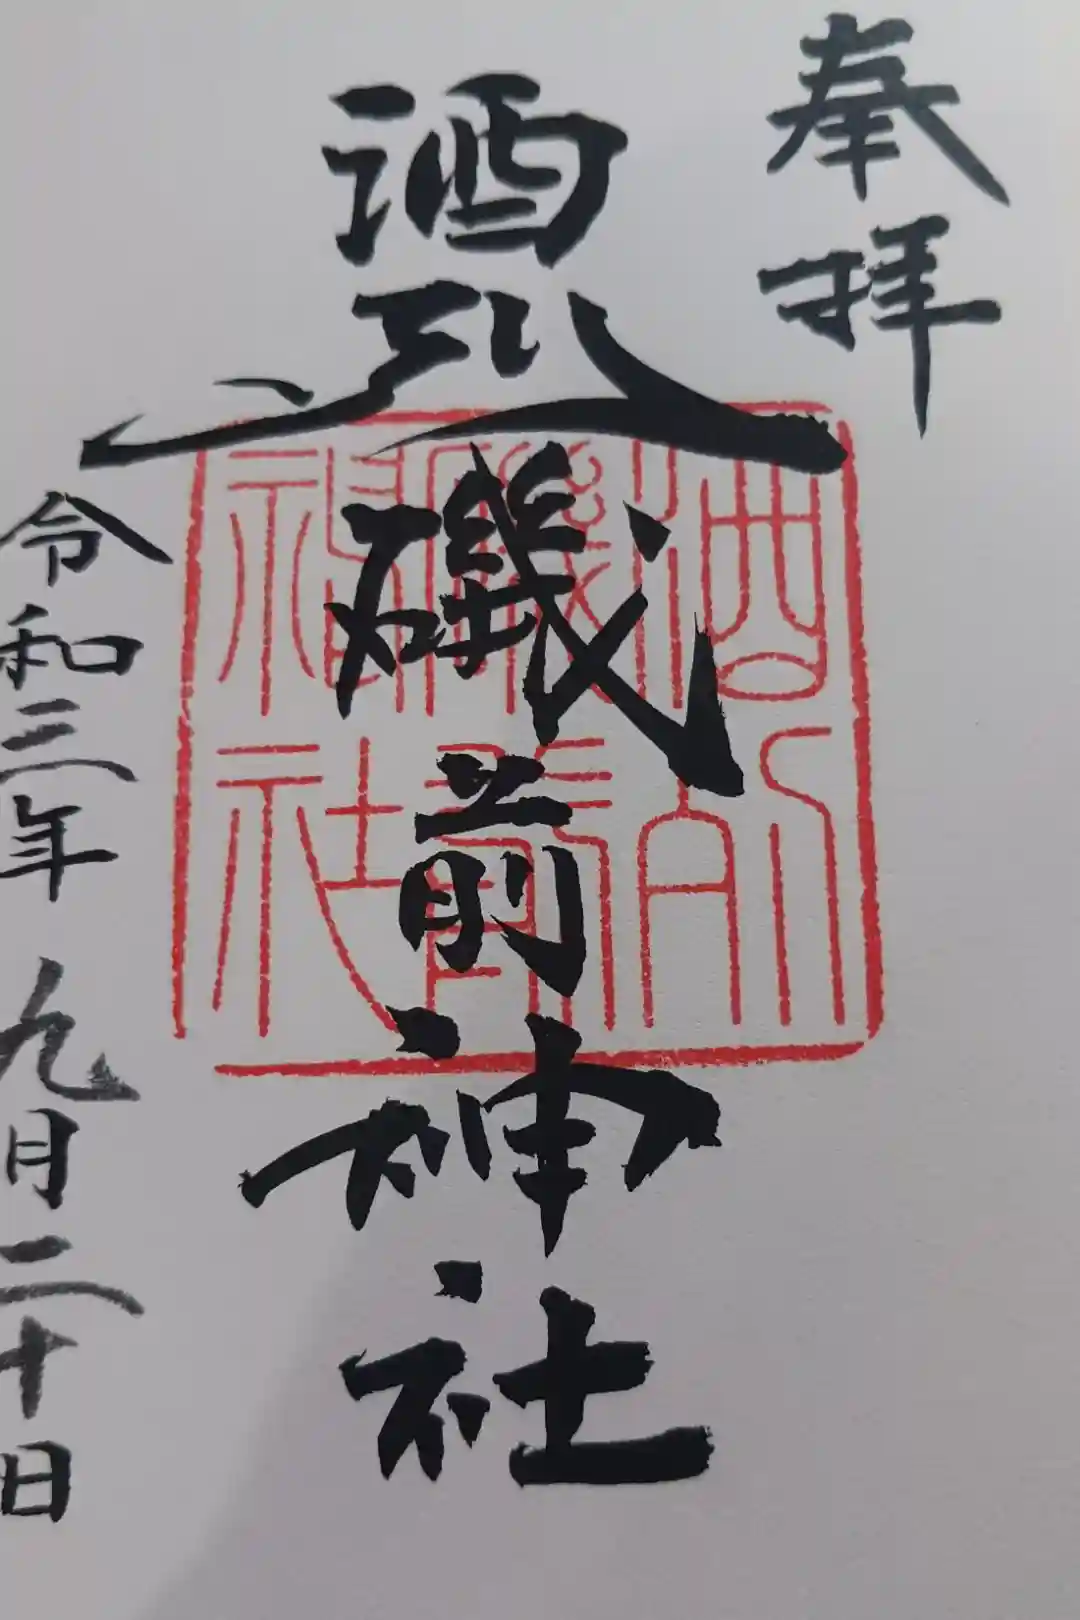 奉拝
酒列磯前神社
令和三年九月二十日
酒列
磯前
神社